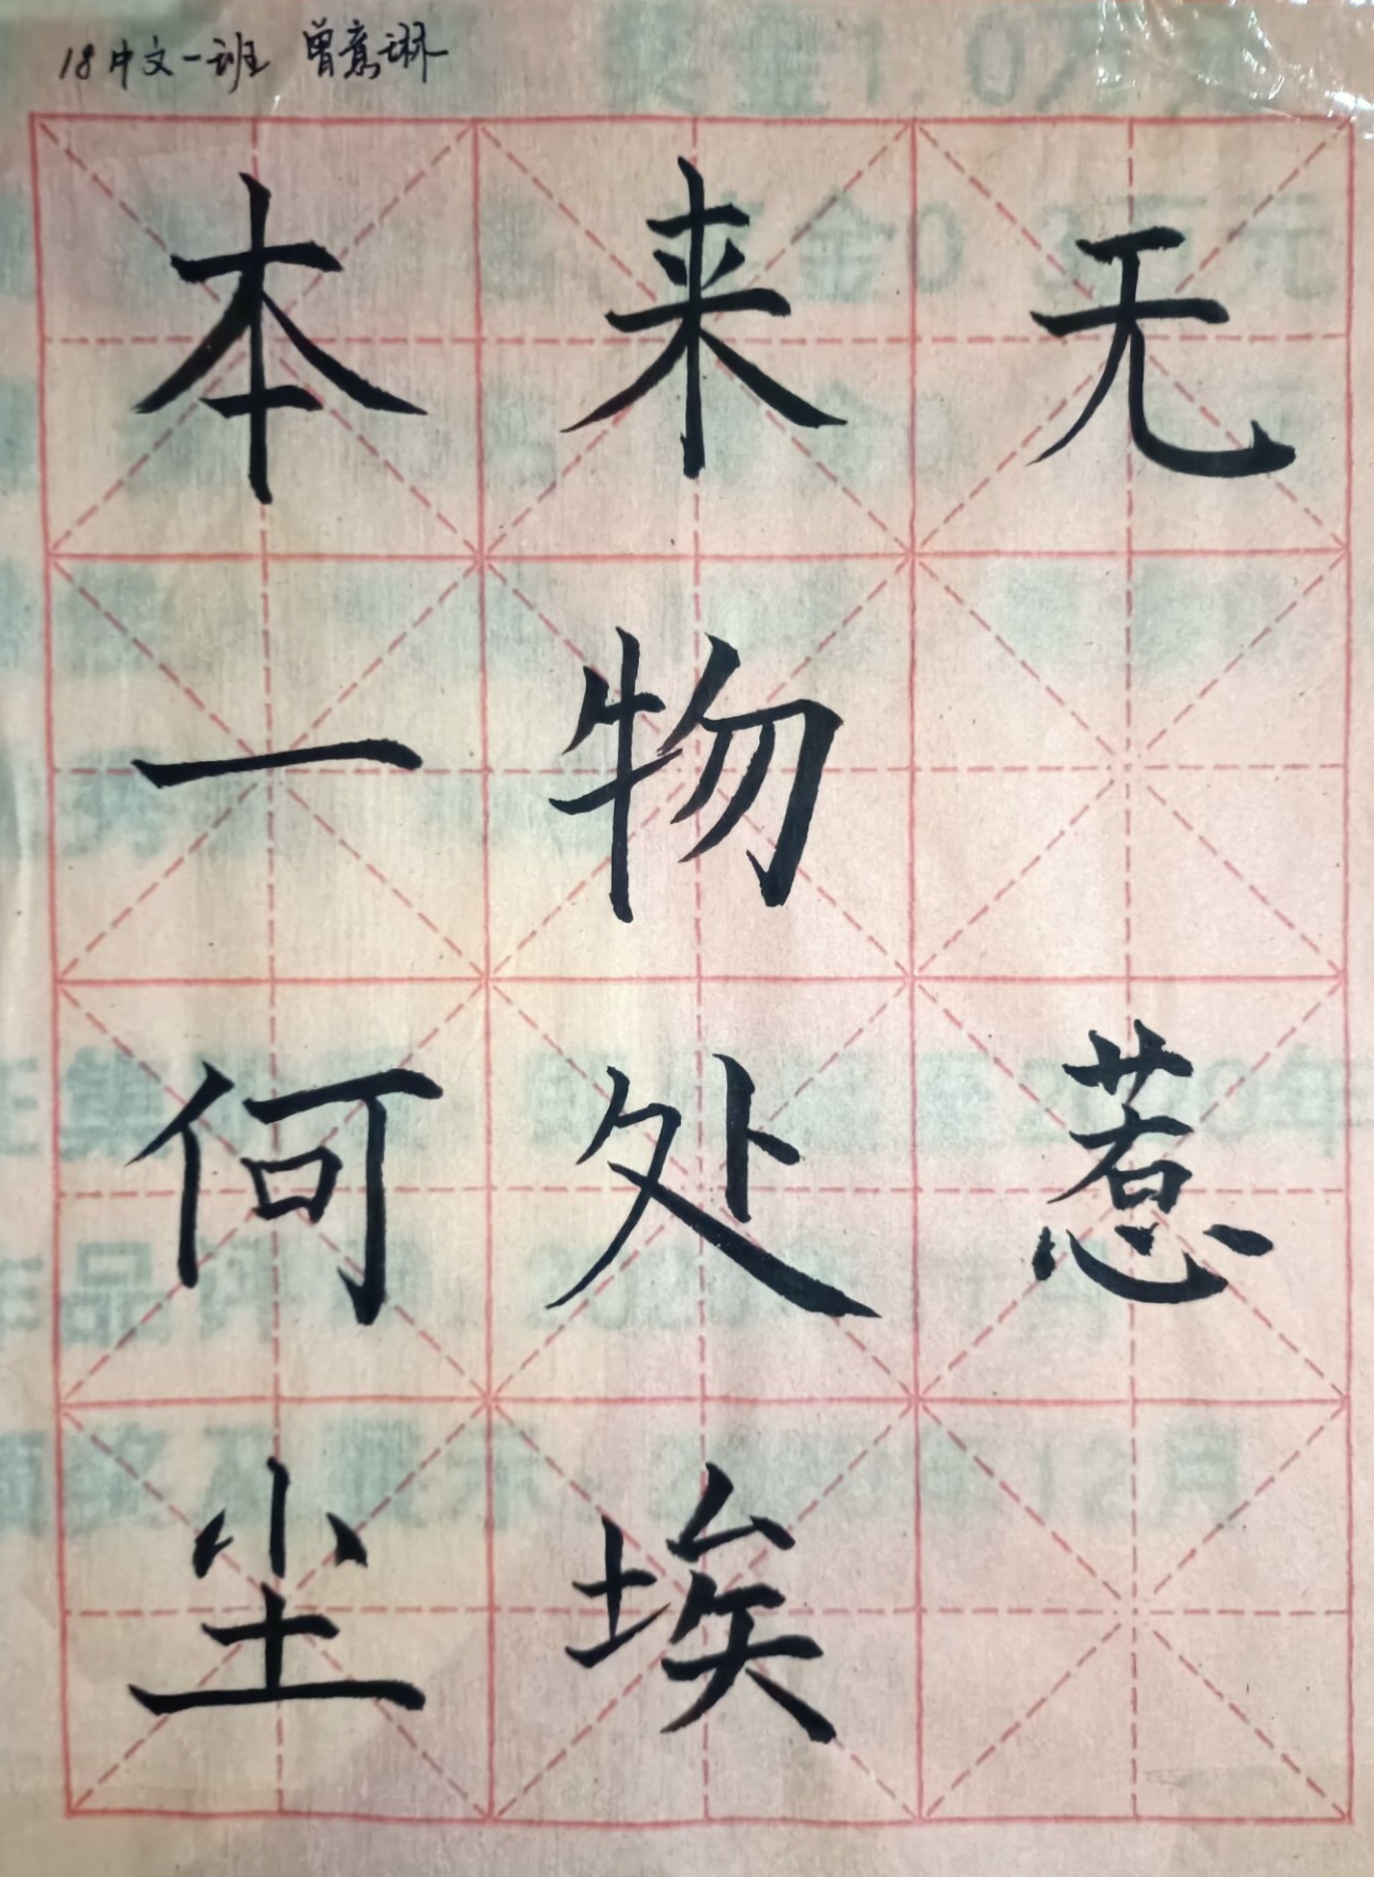 18中文一班 曾意琳
本来无
一物
何处惹
尘埃